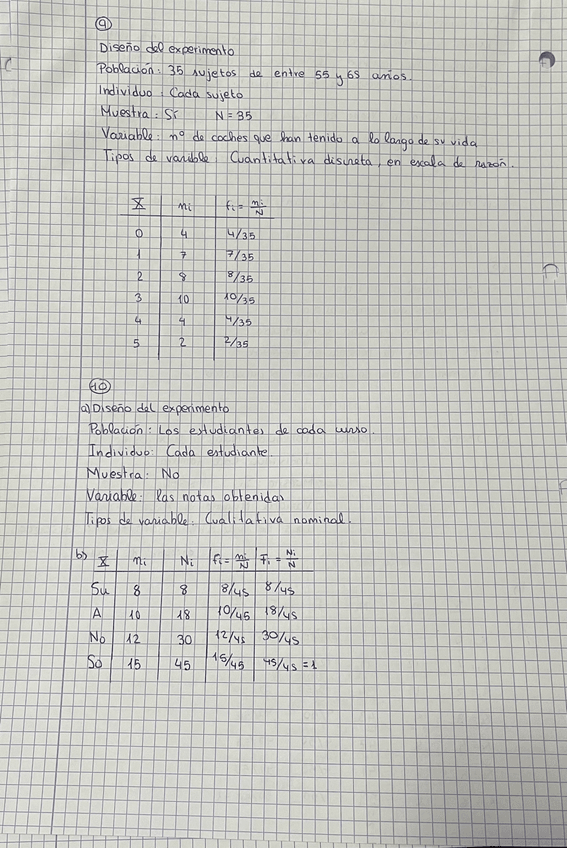 9
Diseño del experimento
Población: 35 sujetos de entre 55 y 65 años.
Individuo: Cada sujeto
Muestra: Sí N = 35
Variable: nº de coches que han tenido a lo largo de su vida
Tipos de varible: Cuantitativa discreta, en escala de razón.
X ni fi = ni/N
0 4 4/35
1 7 7/35
2 8 8/35
3 10 10/35
4 4 4/35
5 2 2/35
10
a) Diseño del experimento
Población: Los estudiantes de cada curso.
Individuo: Cada estudiante.
Muestra: No
Variable: las notas obtenidas
Tipos de variable: Cualitativa nominal.
b) X ni Ni fi = ni/N Fi = Ni/N
Su 8 8 8/45 8/45
A 10 18 10/45 18/45
No 12 30 12/45 30/45
So 15 45 15/45 45/45 = 1